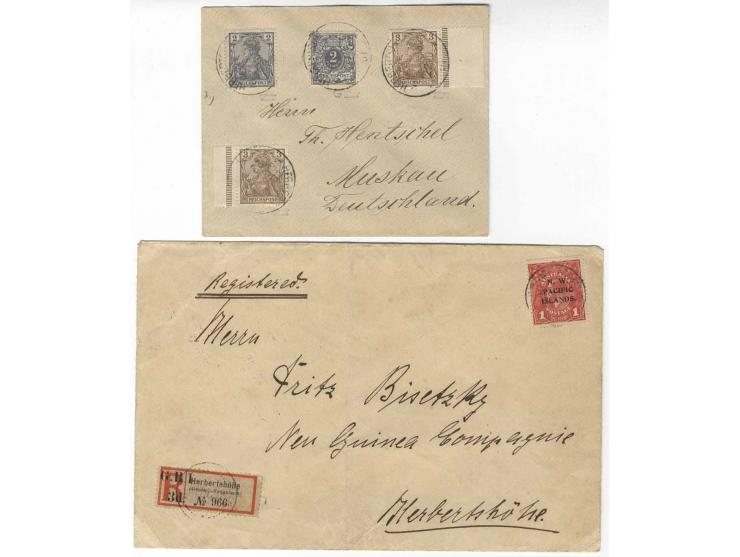 2 2 3
REICHSPOST REICHSPOST REICHSPOST
Herrn
Th. Hentschel
3
REICHSPOST
Muskau
Deutschland.
Registered.
N. W.
PACIFIC
ISLANDS.
1 1
Herrn
Fritz Bisetzky
Neu Guinea Compagnie
G.R.I.
Herbertshöhe
R
3d. № 966
Herbertshöhe.